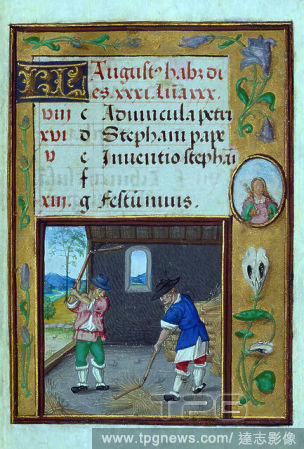 KL Augustꝰ habꝫ di
es.xxxi. lūa xxx.
viii c Advincula petri
xvi d Stephani pape
v e Inventio stephāi
f
xiii. g Festū nivis.
TPG
www.tpgnews.com/達志影像